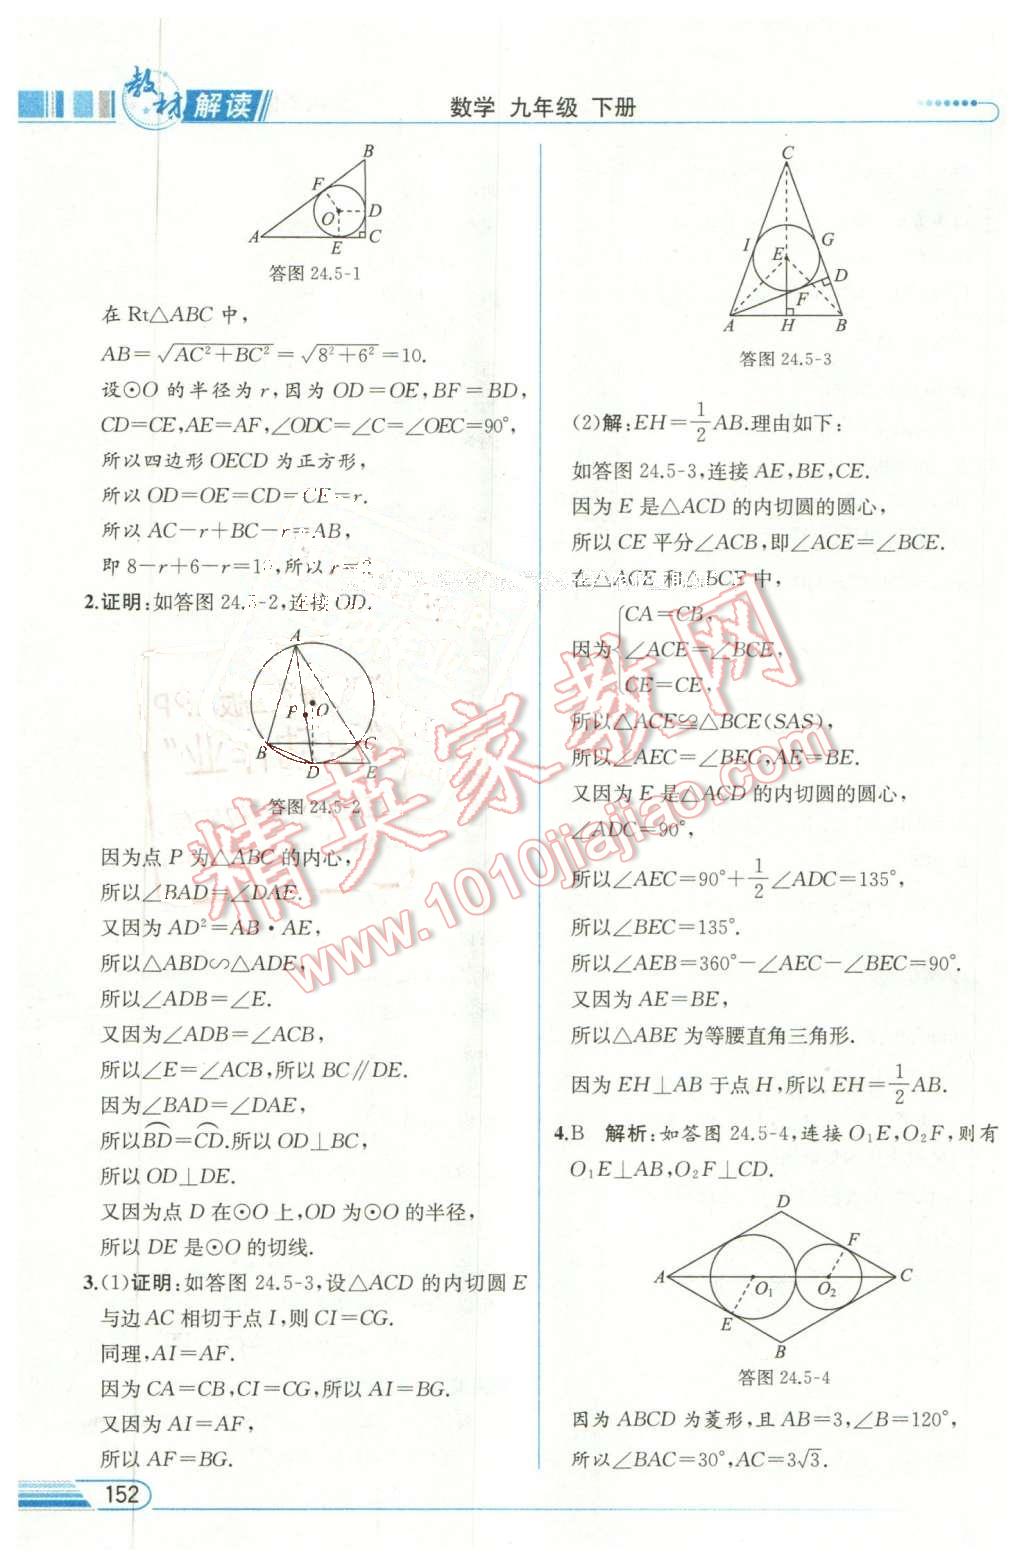 教材解读
数学 九年级 下册
B
F
O
D
A
E
C
答图 24.5-1
在 Rt△ABC 中，
AB=√AC²+BC²=√8²+6²=10.
设⊙O 的半径为 r，因为 OD=OE，BF=BD，
CD=CE，AE=AF，∠ODC=∠C=∠OEC=90°，
所以四边形 OECD 为正方形，
所以 OD=OE=CD=CE=r.
所以 AC-r+BC-r=AB，
即 8-r+6-r=1，所以 r=
2.证明：如答图 24.5-2，连接 OD.
A
P
O
B
C
D
E
答图 24.5-2
因为点 P 为△ABC 的内心，
所以∠BAD=∠DAE.
又因为 AD²=AB·AE，
所以△ABD∽△ADE，
所以∠ADB=∠E.
又因为∠ADB=∠ACB，
所以∠E=∠ACB，所以 BC∥DE.
因为∠BAD=∠DAE，
所以BD=CD.所以 OD⊥BC，
所以 OD⊥DE.
又因为点 D 在⊙O 上，OD 为⊙O 的半径，
所以 DE 是⊙O 的切线.
3.(1)证明：如答图 24.5-3，设△ACD 的内切圆 E
与边 AC 相切于点 I，则 CI=CG.
同理，AI=AF.
因为 CA=CB，CI=CG，所以 AI=BG.
又因为 AI=AF，
所以 AF=BG.
152
C
I
G
E
D
F
A
H
B
答图 24.5-3
(2)解：EH=1/2AB.理由如下：
如答图 24.5-3，连接 AE，BE，CE.
因为 E 是△ACD 的内切圆的圆心，
所以 CE 平分∠ACB，即∠ACE=∠BCE.
在△ACE 和△BCE 中，
CA=CB，
因为 ∠ACE=∠BCE，
CE=CE，
所以△ACE≌△BCE(SAS)，
所以∠AEC=∠BEC，AE=BE.
又因为 E 是△ACD 的内切圆的圆心，
∠ADC=90°，
所以∠AEC=90°+1/2∠ADC=135°，
所以∠BEC=135°.
所以∠AEB=360°-∠AEC-∠BEC=90°.
又因为 AE=BE，
所以△ABE 为等腰直角三角形.
因为 EH⊥AB 于点 H，所以 EH=1/2AB.
4.B 解析：如答图 24.5-4，连接 O₁E，O₂F，则有
O₁E⊥AB，O₂F⊥CD.
D
F
A
O₁
O₂
C
E
B
答图 24.5-4
因为 ABCD 为菱形，且 AB=3，∠B=120°，
所以∠BAC=30°，AC=3√3.
精英家教网
www.1010jiajiao.com